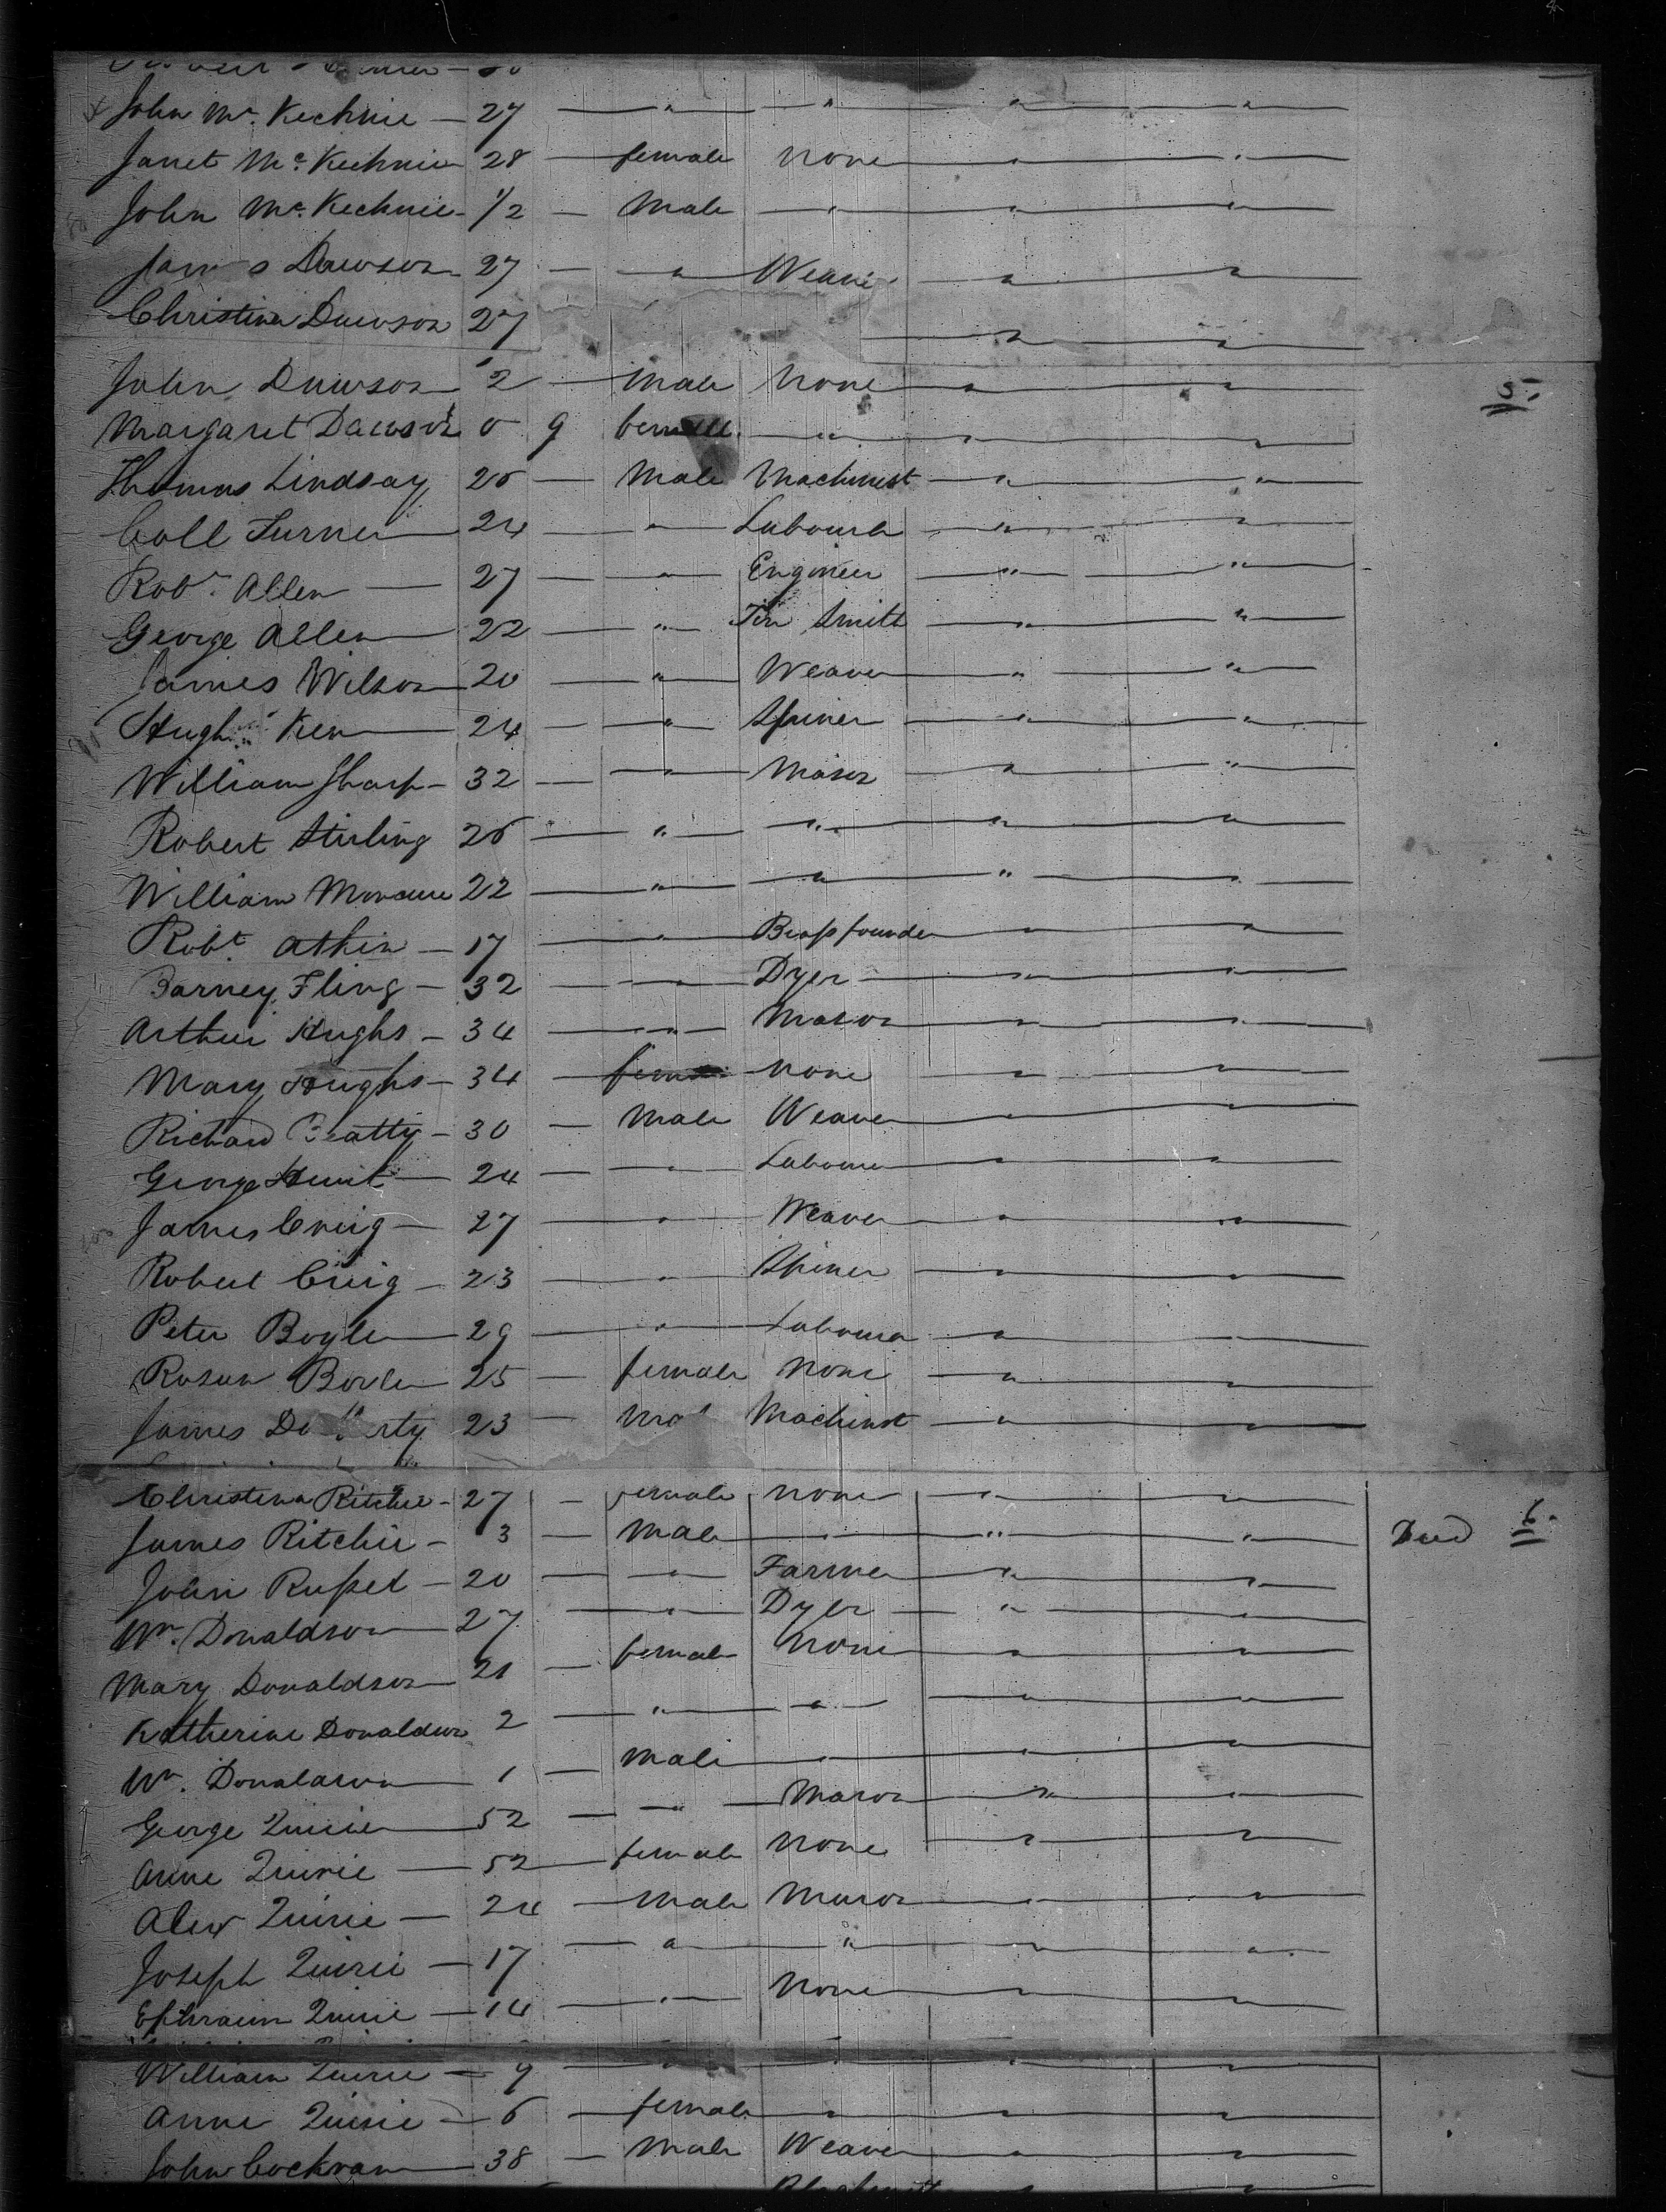 John Mc. Kechnie — 27 — " — " — " — "
Janet Mc. Kechnie 28 — female none — " — "
John Mc. Kechnie - 1/2 — Male — " — " — "
James Dawson 27 — " — Weaver — " — "
Christina Dawson 27 — " — "
John Dawson 2 — Male None — " — " 5.
Margaret Dawson 0 9 female — " — " — "
Thomas Lindsay 25 — Male Machinist — " — "
Coll Turner 24 — " — Labourer — " — "
Robt. Allen — 27 — " — Engineer — " — "
George Allen 22 — " — Tin Smith — " — "
James Wilson 20 — " — Weaver — " — "
Hugh Kerr 24 — " — Spiner — " — "
William Sharp - 32 — " — Mason — " — "
Robert Stirling 26 — " — " — " — "
William 22 — " — " — " — "
Robt. Atkin — 17 — " — Brassfounder — " — "
Barney Fling — 32 — " — Dyer — " — "
Arthur Hughs — 34 — " — Mason — " — "
Mary Hughs — 34 — female None — " — "
Richard Beatty — 30 — Male Weaver — " — "
George Hunt — 24 — " — Labourer — " — "
James Creig — 27 — " — Weaver — " — "
Robert Creig — 23 — " — Spiner — " — "
Peter Boyle — 29 — " — Labourer — " — "
Rosan Boyle 25 — female None — " — "
James 23 — Male Machinist — " — "
Christina Ritchie - 27 — female none — " — "
James Ritchie - 3 — Male — " — " — " Died 6.
John Russel — 20 — " — Farmer — " — "
Wm. Donaldson 27 — " — Dyer — " — "
Mary Donaldson 21 — female None — " — "
Katherine Donaldson 2 — " — " — " — "
Wm. Donaldson 1 — Male — " — " — "
George Quirie 52 — " — Mason — " — "
Anne Quirie — 52 — female None — " — "
Alexr Quirie — 24 — Male Mason — " — "
Joseph Quirie — 17 — " — " — " — "
Ephraim Quirie — 14 — " — None — " — "
William Quirie — 9 — " — " — " — "
Anne Quirie — 6 — female — " — " — "
John Cockran — 38 — Male Weaver — " — "